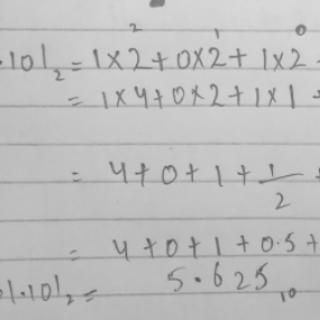 .101₂ = 1×2²+0×2¹+1×2⁰
= 1×4+0×2+1×1+
= 4+0+1+1/2+
= 4+0+1+0.5+
1.101₂ = 5.625₁₀